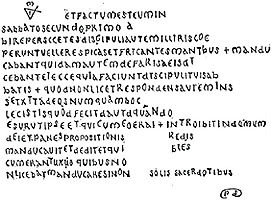 ETFACTUMESTEUMIN
SABBATOSECUNDOPRIMO A
BIREPERSCCETESDISCIPULIAUTEMILLIRISCOE
PERUNTVELLERESPICASETFRICANTESMANTBUS + MANDU
CABANTQUIDAMAUTEMDEFARISAEISDI
CEBANTEIECCEQUIAFACIUNTDISCIPULITUISAB
BATIS + QUODNONLICETRESPONDENSAUTEMINS
SETXTADEOSNUMQUAMHOC
LECISTISQUODFECITDAUTDQUANDO
ESURUTIPSEETQUICUMEOERAT + INTROIBITINDOMUM
DEIETPANESPROPOSITIONIS REDIS
MANDUCAUITETDEDITETQUI BLES
CUMERANTUXIIS QUIBUSNO
NLICEBATMANDUCARESINON SOLIS SACERDOTIBUS
PD